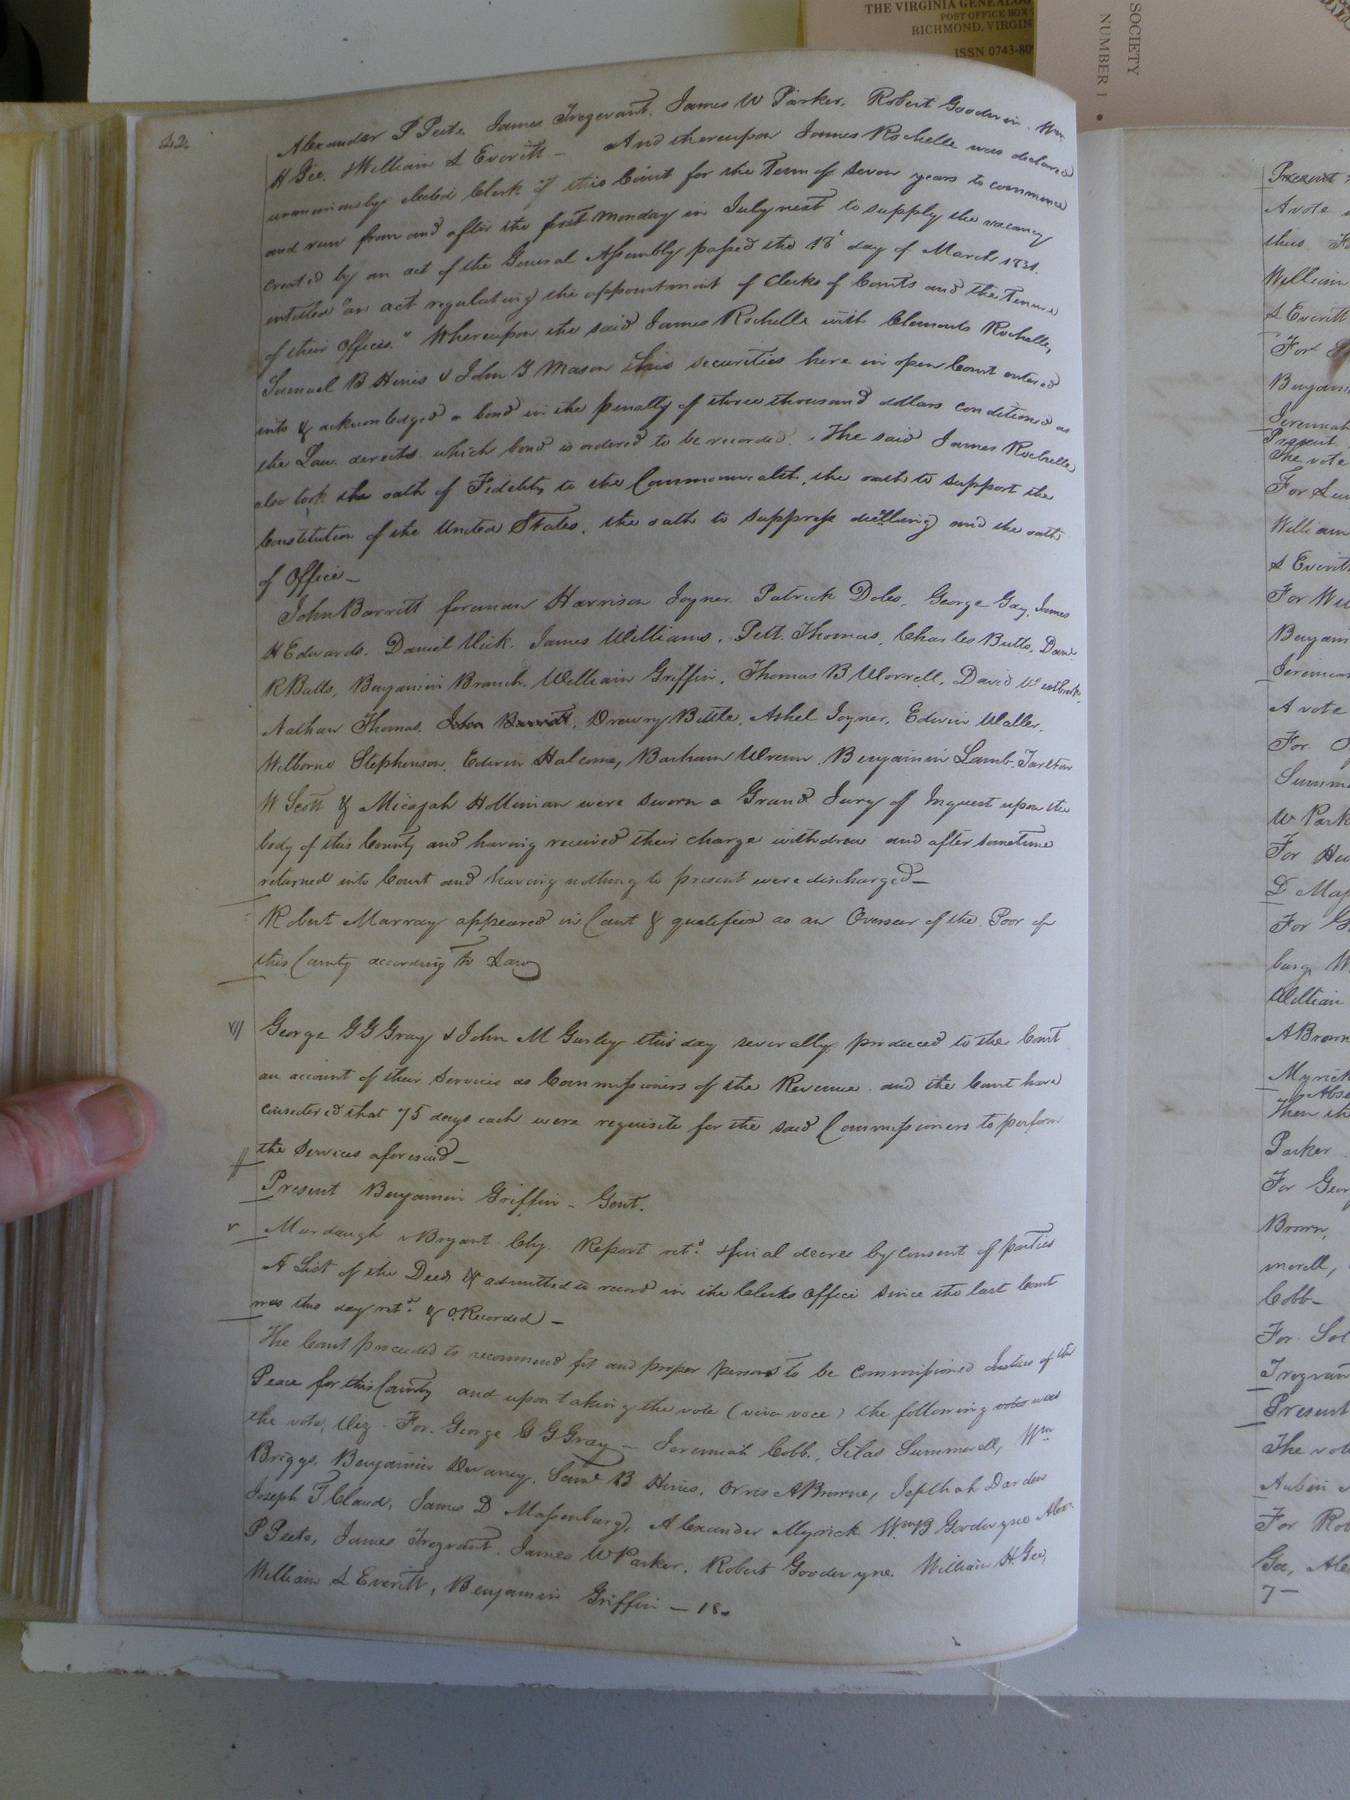 THE VIRGINIA GENEALOG
POST OFFICE BOX
RICHMOND, VIRGIN
ISSN 0743-80
SOCIETY
NUMBER 1
42
Alexander P Peete James Trezevant, James W Parker. Robert Goodwin Wm
H Gee. & William L Everitt — And thereupon James Rochelle was declared
unanimously elected Clerk of this Court for the Term of seven years to commence
and run from and after the first Monday in July next to supply the vacancy
created by an act of the General Assembly passed the 18t day of March 1831.
entitled "an act regulating the appointment of Clerks of Courts and the Tenure
of their Offices." Whereupon the said James Rochelle with Clements Rochelle,
Samuel B Hines & John Y Mason his securities here in open Court entered
into & acknowledged a bond in the penalty of three thousand dollars conditioned as
the Law directs which bond is ordered to be recorded. The said James Rochelle
also took the oath of Fidelity to the Commonwealth, the oath to support the
Constitution of the United States, the oath to suppress duelling and the oath
of Office —
John Barritt foreman Harrison Joyner. Patrick Doles, George Gay, James
H Edwards. Daniel Vick. James Williams, Pett. Thomas, Charles Butts, Danl.
R Butts, Benjamin Branch, William Griffin, Thomas B Worrell, David Westbrook,
Nathan Thomas, John Barritt, Drewry Bittle, Ashel Joyner, Edwin Waller,
Wilborne Stephenson, Edwin Halcome, Barham Wrenn, Benjamin Lamb. Tarlton
W Scott & Micajah Holliman were sworn a Grand Jury of Inquest upon the
body of this County and having received their charge withdrew and after sometime
returned into Court and having nothing to present were discharged —
Robert Murray appeared in Court & qualified as an Overseer of the Poor of
this County according to Law
George G G Gray & John M Gurley this day severally produced to the Court
an account of their Services as Commissioners of the Revenue and the Court have
considered that 75 days each were requisite for the said Commissioners to perform
the Services aforesaid —
Present Benjamin Griffin - Gent.
v Murdaugh v Bryant Chy. Report retd. & final decree by consent of parties
A List of the Deeds &c admitted to record in the Clerks Office since the last Court
was this day retd. & O. Recorded —
The Court proceeded to recommend fit and proper persons to be commissioned Justices of the
Peace for this County and upon taking the vote (viva voce) the following votes was
the vote, Viz. For. George G G Gray — Jeremiah Cobb, Silas Summerell, Wm
Briggs, Benjamin Devaney, Saml B Hines, Orris A Browne, Jepthah Darden
Joseph T Claud, James D Massenburg, Alexander Myrick Wm B Goodwyne Alexr
P Peete, James Trezvant, James W Parker, Robert Goodwyne William H Gee,
William L Everitt, Benjamin Griffin — 18.
Present
A vote
thus. F
William
L Everitt
For
Benjami
Jeremiah
Present
The vote
For
William
L Everitt
For
Benjami
Jeremia
A vote
For
Summe
W Park
For
D Mas
For G
burg W
William
A Brown
Myrick
Abse
Then the
Parker
For Geor
Brown,
merell,
Cobb —
For Sol
Trezvan
Present
The vote
Aubin
For Rob
Gee, Ale
7 —